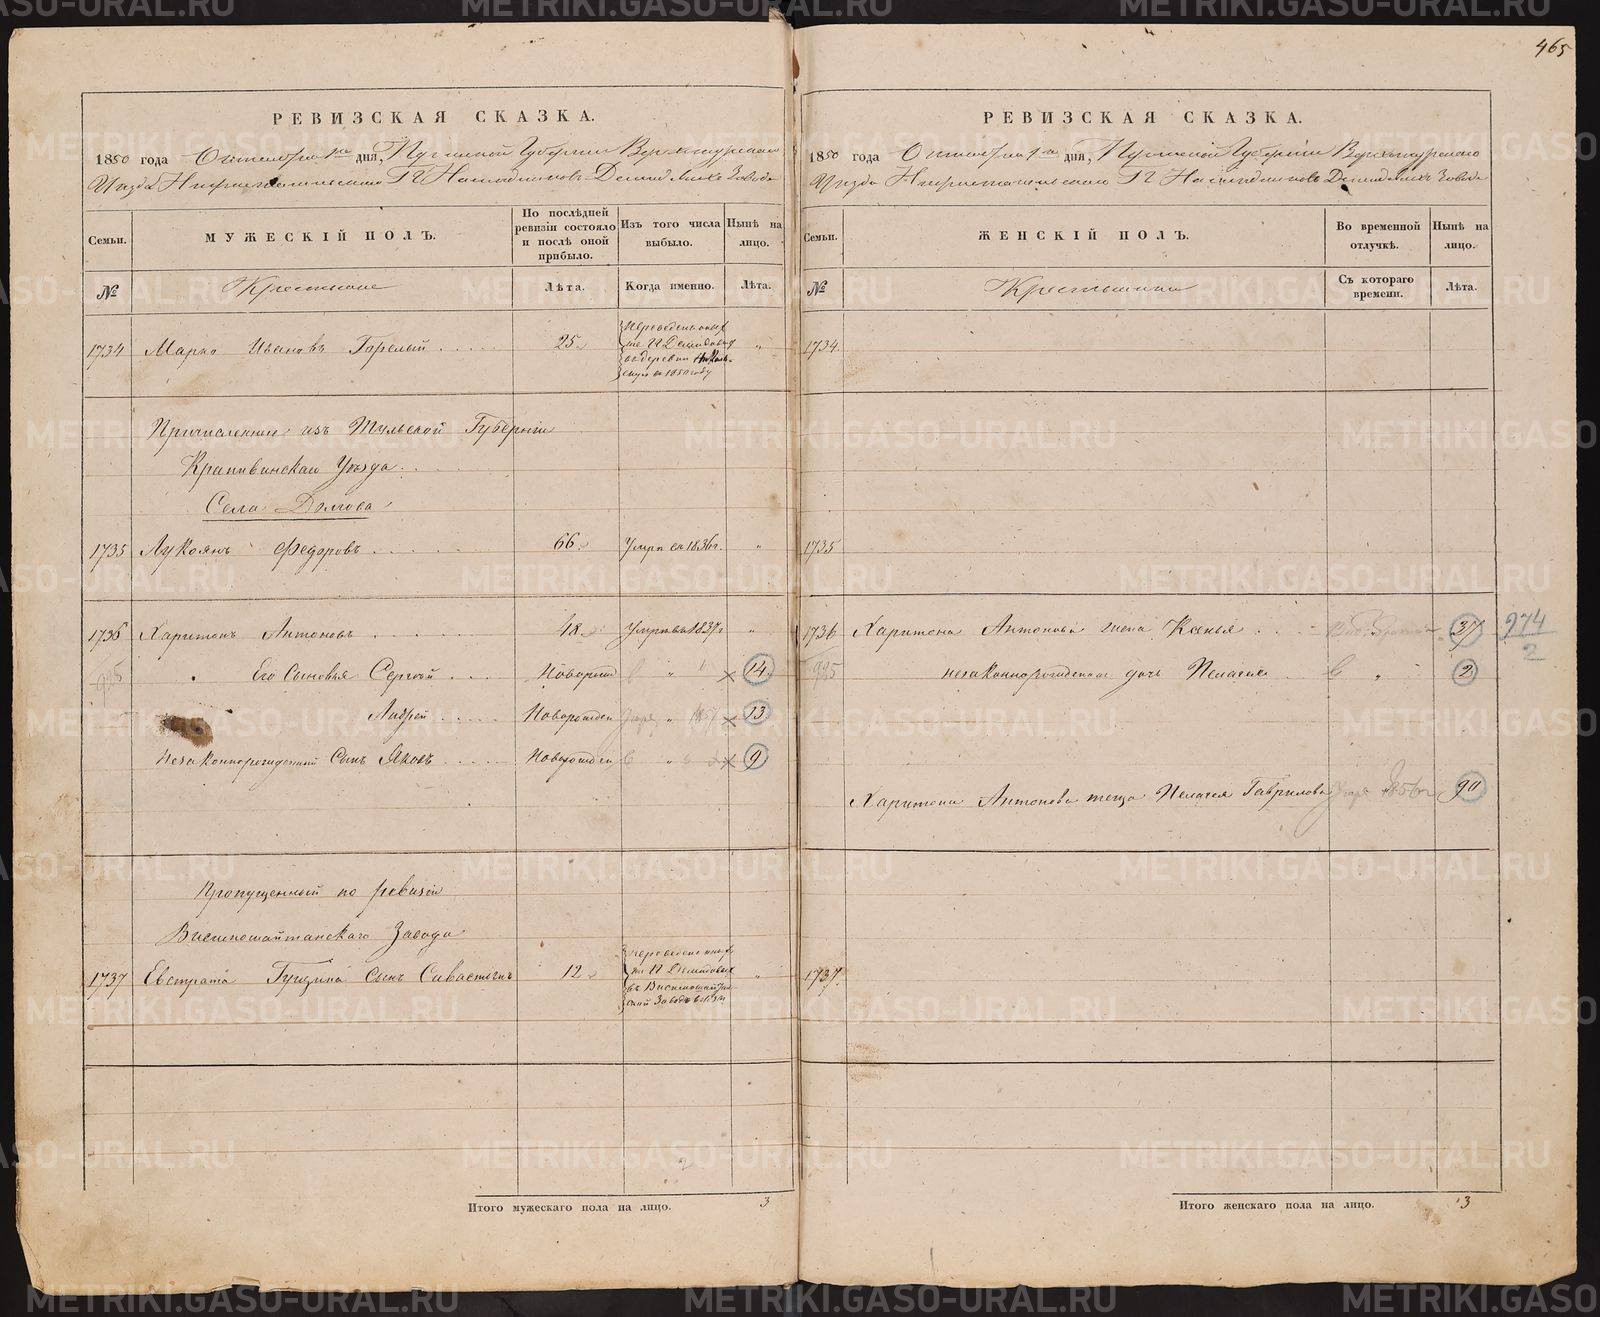 465
РЕВИЗСКАЯ СКАЗКА.
1850 года Октября 1го дня, Пермской Губернии Верхотурскаго
Уезда Нижнетагильскаго Гг Наследниковъ Демидовыхъ Завода
Семьи.
МУЖЕСКІЙ ПОЛЪ.
По послѣдней ревизіи состояло и послѣ оной прибыло.
Изъ того числа выбыло.
Нынѣ на лицо.
№
Крестьяне
Лѣта.
Когда именно.
Лѣта.
1734 Марко Ивановъ Горелый 25 "
въ 1850 году
Причисленные изъ Тульской Губерніи
Крапивинскаго Уѣзда
Села Долгова
1735 Лукоянъ Федоровъ 66 Умре въ 1836 г. "
1736 Харитонъ Антоновъ 48 Умре въ 1837 г "
925 Его Сыновья Сергей Новорожд " × 14
Андрей Новорожден " 1857 × 13
незаконнорожденный Сынъ Яковъ Новорожден " × 9
Пропущенный по ревизіи
Висимошайтанскаго Завода
1737 Евстрата Гущина Сынъ Савастьянъ 12 "
Итого мужескаго пола на лицо. 3
РЕВИЗСКАЯ СКАЗКА.
1850 года Октября 1го дня, Пермской Губерніи Верхотурскаго
Уезда Нижнетагильскаго Гг Наследниковъ Демидовыхъ Завода
Семьи.
ЖЕНСКІЙ ПОЛЪ.
Во временной отлучкѣ.
Нынѣ на лицо.
№
Съ котораго времени.
Лѣта.
1734
1735
1736 Харитона Антонова жена Ксенья 37 974
2
925 незаконнорожденная дочь Пелагея " 2
Харитона Антонова теща Пелагея Гаврилова 1856 90
1737
Итого женскаго пола на лицо. 3
METRIKI.GASO-URAL.RU